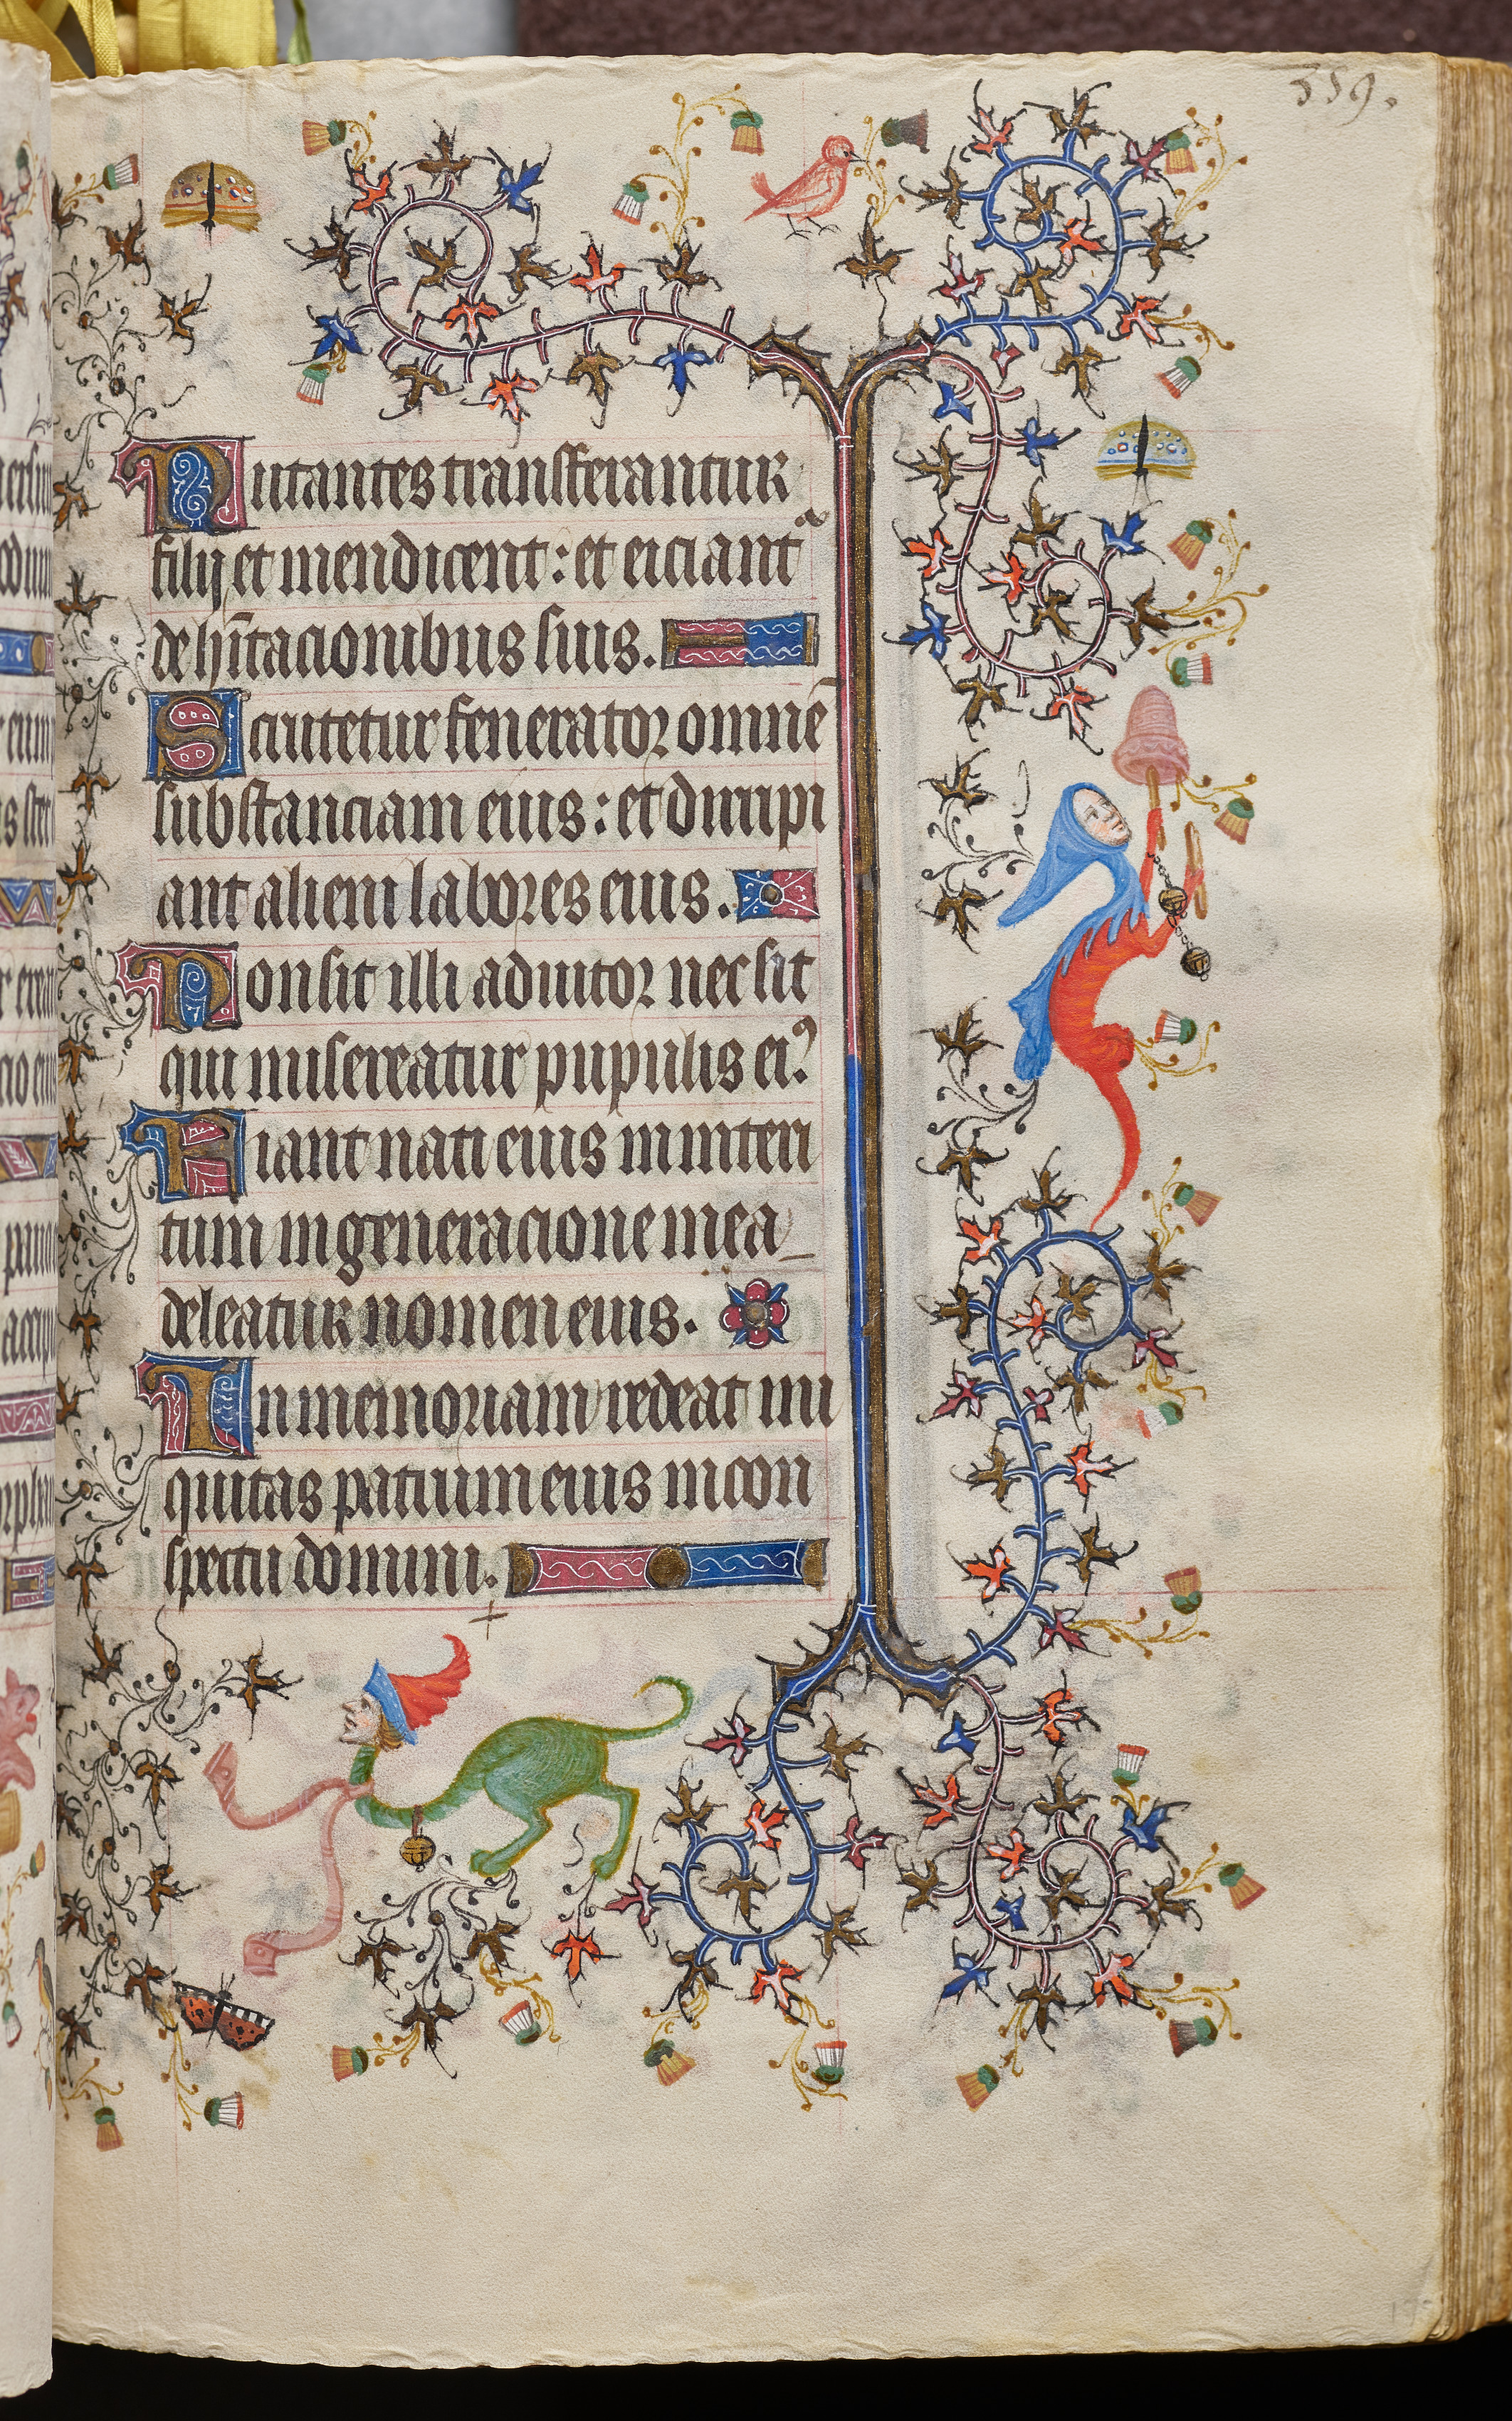 359.
Nutantes transfferantur
filij et mendicent: et eiciant
de hītacionibus suis.
Scrutetur fenerator omnē
substanciam eius: et diripi
ant alieni labores eius.
Non sit illi adiutor nec sit
qui misereatur pupulis ei9
Fiant nati eius in interi
tum in generacione mea
deleatur nomen eius.
In memoriam redeat ini
quitas patrum eius in con
spectu domini.